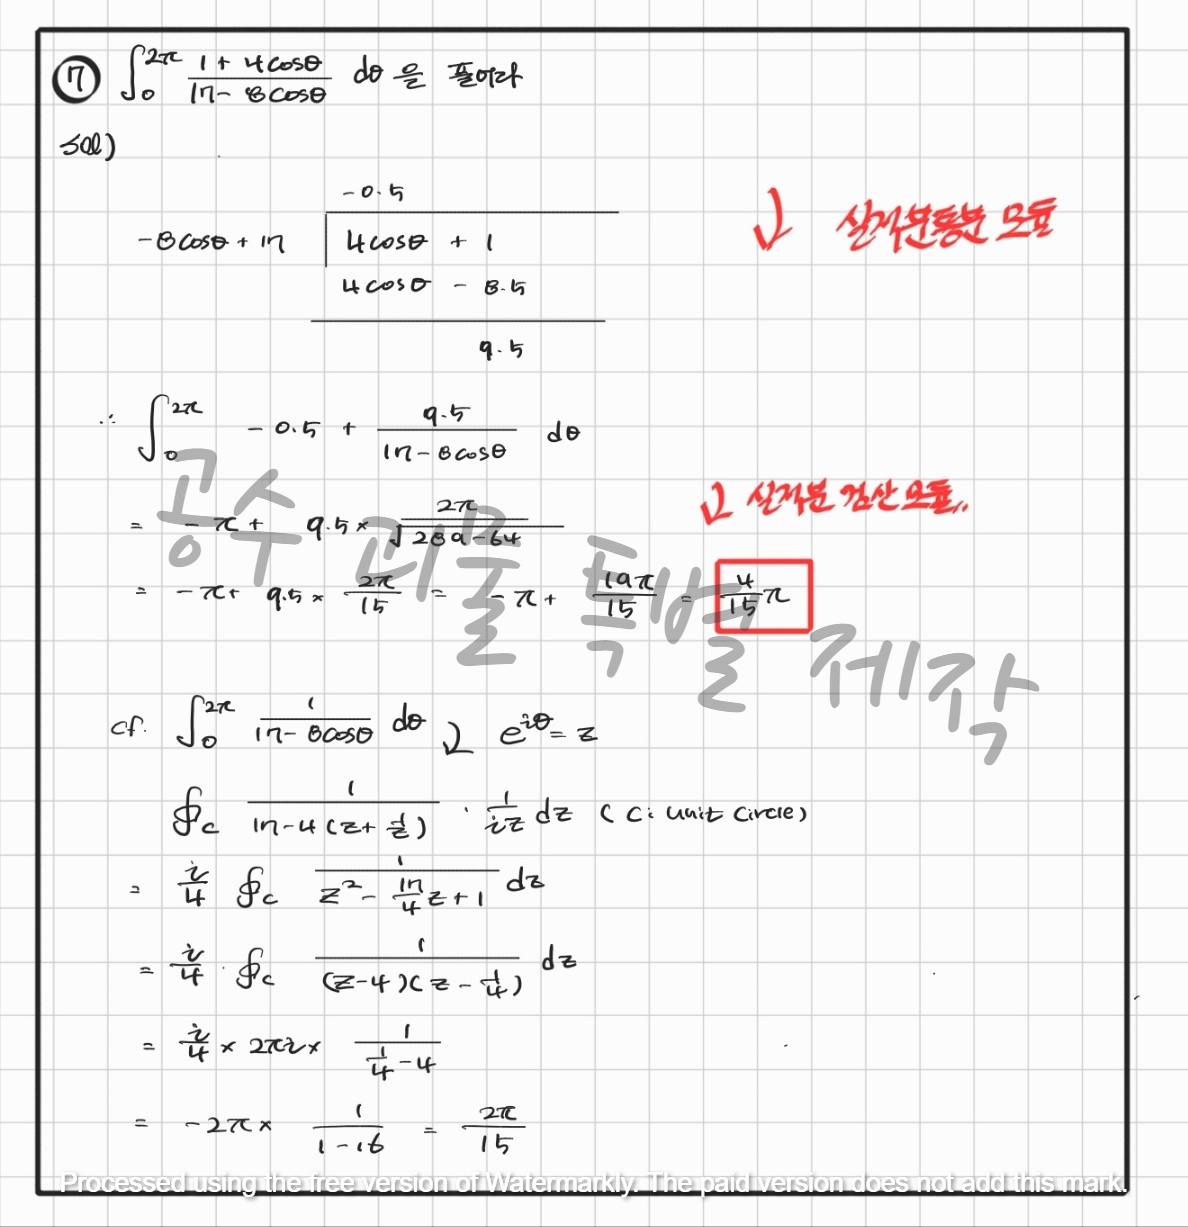 ⑦ ∫₀^2π (1 + 4cosθ)/(17 - 8cosθ) dθ 을 풀어라
sol)
-0.5
-8cosθ + 17 | 4cosθ + 1
4cosθ - 8.5
9.5
↓ 실적분통분 모듈
∴ ∫₀^2π -0.5 + 9.5/(17 - 8cosθ) dθ
= -π + 9.5 × 2π/√(289-64)
↓ 실적분 검산 모듈..
= -π + 9.5 × 2π/15 = -π + 19π/15 = 4/15 π
공수 괴물 특발 제작
cf. ∫₀^2π 1/(17 - 8cosθ) dθ ↓ e^iθ = z
∮c 1/(17-4(z+1/z)) · 1/iz dz (C: unit circle)
= i/4 ∮c 1/(z² - 17/4 z + 1) dz
= i/4 · ∮c 1/((z-4)(z-1/4)) dz
= i/4 × 2πi × 1/(1/4 - 4)
= -2π × 1/(1-16) = 2π/15
Processed using the free version of Watermarkly. The paid version does not add this mark.